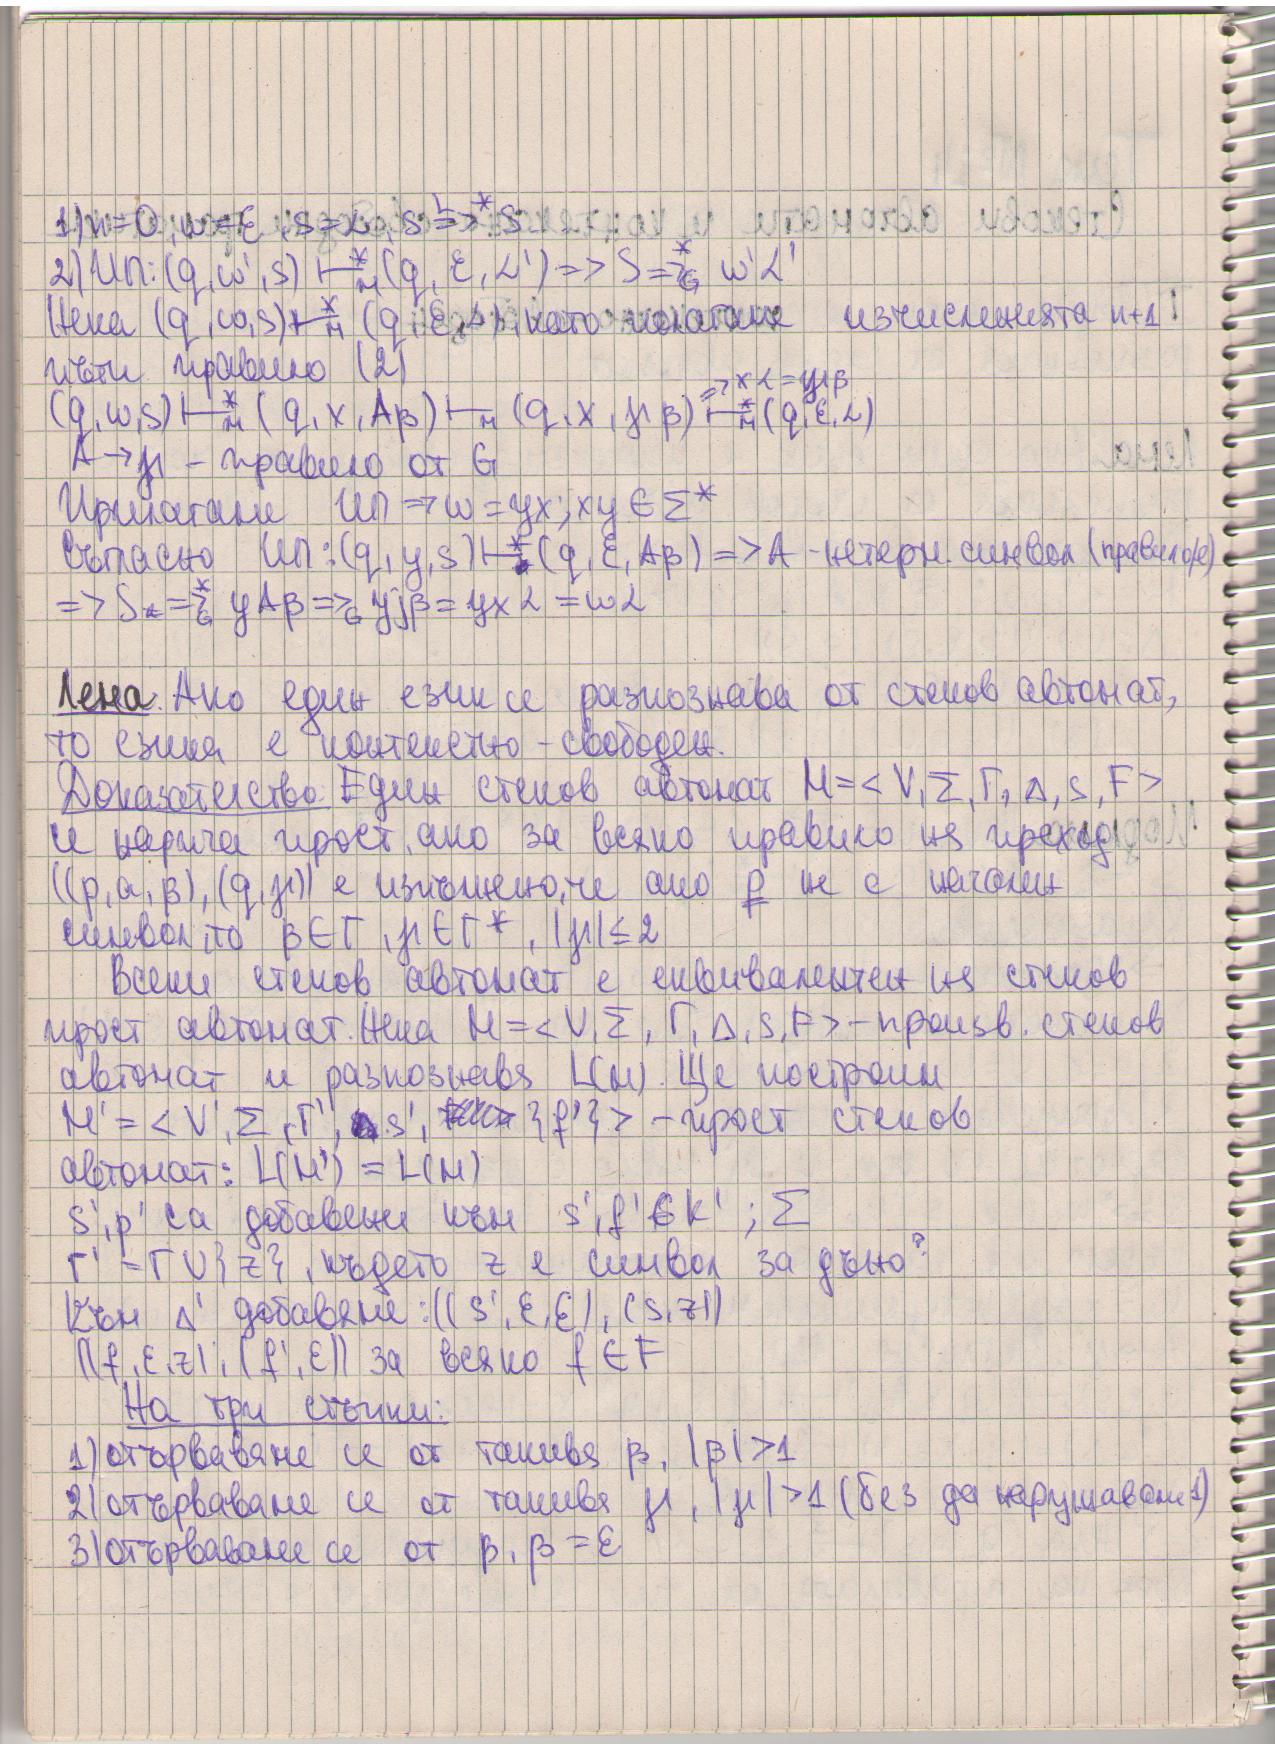 1) n=0, w=ε, S=α, S =>* S
2) ИП: (q, w', s) ⊢*M (q, ε, α') => S =>*G w'α'
Нека (q, w, s) ⊢*M (q, ε, α), като прилагаме изчисленията n+1
пъти правило (2)
(q, w, s) ⊢*M (q, x, Aβ) ⊢M (q, x, μβ) ⊢*M (q, ε, α) => xα=μβ
A → μ – правило от G
Прилагаме ИП => w = yx; xy ∈ Σ*
Съгласно ИП: (q, y, s) ⊢* (q, ε, Aβ) => A - нетерм. символ (правило)
=> S =>*G yAβ =>G yμβ = yxα = wα
Лема. Ако един език се разпознава от стеков автомат,
то езика е контекстно-свободен.
Доказателство: Един стеков автомат M=<V, Σ, Γ, Δ, s, F>
се нарича прост, ако за всяко правило на преход
((p, a, β), (q, μ)) е изпълнено, че ако p не е начален
символ, то β∈Γ, μ∈Γ*, |μ|≤2
Всеки стеков автомат е еквивалентен на стеков
прост автомат. Нека M=<V, Σ, Γ, Δ, s, F> – произв. стеков
автомат и разпознава L(M). Ще построим
M' = <V', Σ, Γ', Δ, s', {f'}> – прост стеков
автомат: L(M') = L(M)
s', p' са добавени към s', f' ∈ K'; Σ
Γ' = Γ∪{z}, където z е символ за дъно?
Към Δ' добавяме: ((s', ε, ε), (s, z))
((f, ε, z), (f', ε)) за всяко f∈F
На три стъпки:
1) отърваваме се от такива β, |β|>1
2) отърваваме се от такива μ, |μ|>1 (без да нарушаваме 1)
3) отърваваме се от β, β=ε